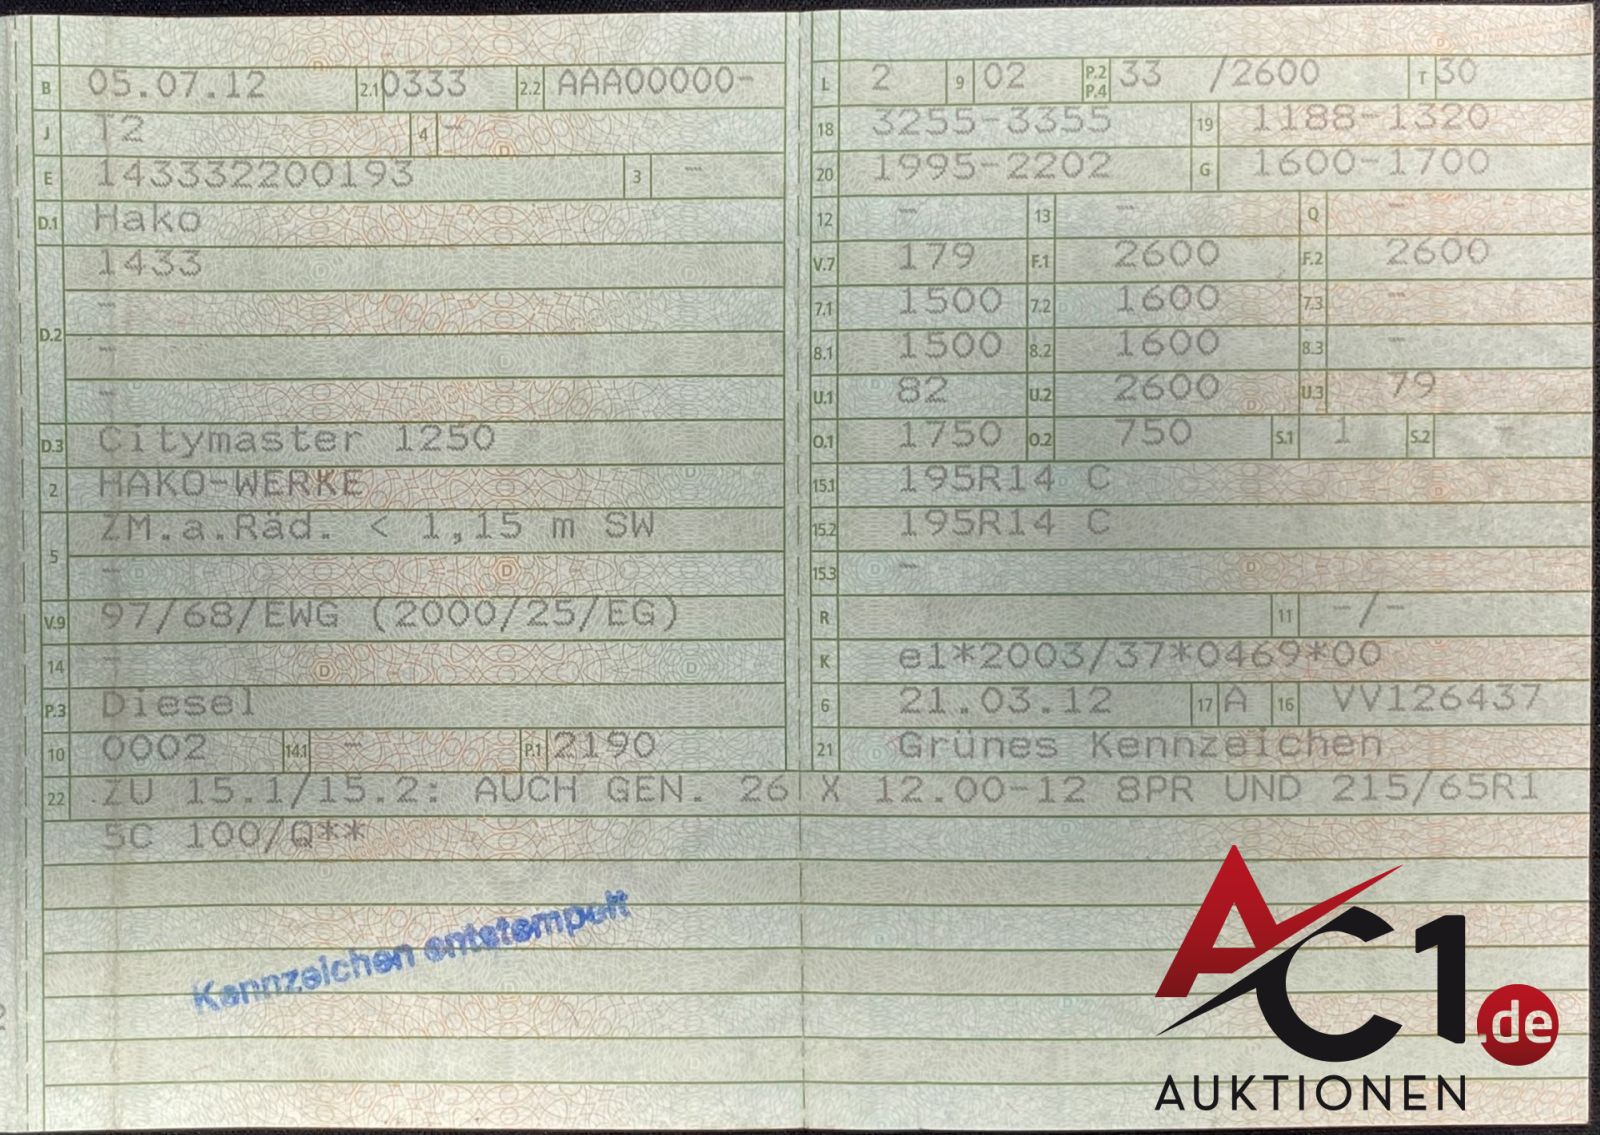 B 05.07.12 2.1 0333 2.2 AAA00000-
J T2 4 -
E 143332200193 3 -
D.1 Hako
1433
-
D.2
-
-
D.3 Citymaster 1250
2 HAKO-WERKE
5 ZM.a.Räd. < 1,15 m SW
-
V.9 97/68/EWG (2000/25/EG)
14 -
P.3 Diesel
10 0002 14.1 - P.1 2190
L 2 9 02 P.2 P.4 33 /2600 T 30
18 3255-3355 19 1188-1320
20 1995-2202 G 1600-1700
12 - 13 - Q -
V.7 179 F.1 2600 F.2 2600
7.1 1500 7.2 1600 7.3 -
8.1 1500 8.2 1600 8.3 -
U.1 82 U.2 2600 U.3 79
O.1 1750 O.2 750 S.1 1 S.2 -
15.1 195R14 C
15.2 195R14 C
15.3 -
R 11 -/-
K e1*2003/37*0469*00
6 21.03.12 17 A 16 VV126437
21 Grünes Kennzeichen
22 ZU 15.1/15.2: AUCH GEN. 26 X 12.00-12 8PR UND 215/65R1
5C 100/Q**
Kennzeichen entstempelt
AC1.de
AUKTIONEN